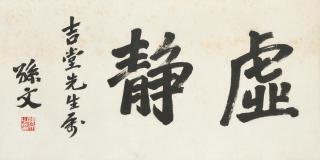 虛靜
吉堂先生屬
孫文